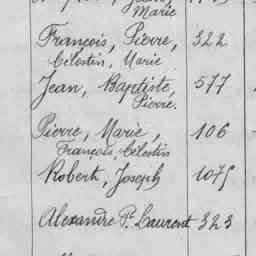 Marie
François, Pierre, 322
Célestin, Marie
Jean, Baptiste, 577
Pierre.
Pierre, Marie, 106
François, Célestin
Robert, Joseph 1075
Alexandre P. Laurent 323